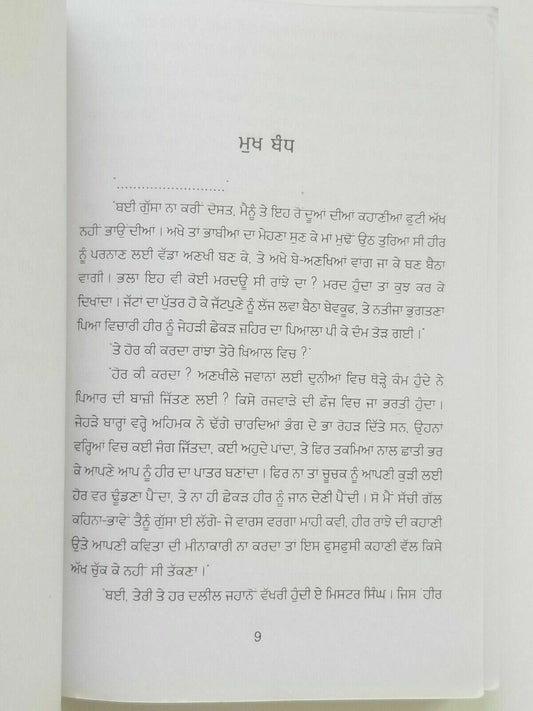 ਮੁਖ ਬੰਧ
'..........................'
'ਬਈ ਗੁੱਸਾ ਨਾ ਕਰੀਂ ਦੋਸਤ, ਮੈਨੂੰ ਤੇ ਇਹ ਰੋਂਦੂਆਂ ਦੀਆਂ ਕਹਾਣੀਆਂ ਫੁਟੀ ਅੱਖ
ਨਹੀਂ ਭਾਉਂਦੀਆਂ। ਅਖੇ ਤਾਂ ਭਾਬੀਆਂ ਦਾ ਮੇਹਣਾ ਸੁਣ ਕੇ ਮਾਂ ਮੁਢੋਂ ਉਠ ਤੁਰਿਆ ਸੀ ਹੀਰ
ਨੂੰ ਪਰਨਾਣ ਲਈ ਵੱਡਾ ਅਣਖੀ ਬਣ ਕੇ, ਤੇ ਅਖੇ ਬੇ-ਅਣਖਿਆਂ ਵਾਂਗ ਜਾ ਕੇ ਬਣ ਬੈਠਾ
ਵਾਗੀ। ਭਲਾ ਇਹ ਵੀ ਕੋਈ ਮਰਦਊ ਸੀ ਰਾਂਝੇ ਦਾ ? ਮਰਦ ਹੁੰਦਾ ਤਾਂ ਕੁਝ ਕਰ ਕੇ
ਦਿਖਾਂਦਾ। ਜੱਟਾਂ ਦਾ ਪੁੱਤਰ ਹੋ ਕੇ ਜੱਟਪੁਣੇ ਨੂੰ ਲੱਜ ਲਵਾ ਬੈਠਾ ਬੇਵਕੂਫ, ਤੇ ਨਤੀਜਾ ਭੁਗਤਣਾ
ਪਿਆ ਵਿਚਾਰੀ ਹੀਰ ਨੂੰ ਜੇਹੜੀ ਛੇਕੜ ਜ਼ਹਿਰ ਦਾ ਪਿਆਲਾ ਪੀ ਕੇ ਦੰਮ ਤੋੜ ਗਈ।'
'ਤੇ ਹੋਰ ਕੀ ਕਰਦਾ ਰਾਂਝਾ ਤੇਰੇ ਖ਼ਿਆਲ ਵਿਚ ?'
'ਹੋਰ ਕੀ ਕਰਦਾ ? ਅਣਖੀਲੇ ਜਵਾਨਾਂ ਲਈ ਦੁਨੀਆਂ ਵਿਚ ਥੋੜ੍ਹੇ ਕੰਮ ਹੁੰਦੇ ਨੇ
ਪਿਆਰ ਦੀ ਬਾਜ਼ੀ ਜਿੱਤਣ ਲਈ ? ਕਿਸੇ ਰਜਵਾੜੇ ਦੀ ਫੌਜ ਵਿਚ ਜਾ ਭਰਤੀ ਹੁੰਦਾ।
ਜੇਹੜੇ ਬਾਰ੍ਹਾਂ ਵਰ੍ਹੇ ਅਹਿਮਕ ਨੇ ਢੱਗੇ ਚਾਰਦਿਆਂ ਭੰਗ ਦੇ ਭਾ ਰੋਹੜ ਦਿੱਤੇ ਸਨ, ਉਹਨਾਂ
ਵਰ੍ਹਿਆਂ ਵਿਚ ਕਈ ਜੰਗ ਜਿੱਤਦਾ, ਕਈ ਅਹੁਦੇ ਪਾਂਦਾ, ਤੇ ਫਿਰ ਤਕਮਿਆਂ ਨਾਲ ਛਾਤੀ ਭਰ
ਕੇ ਆਪਣੇ ਆਪ ਨੂੰ ਹੀਰ ਦਾ ਪਾਤਰ ਬਣਾਂਦਾ। ਫਿਰ ਨਾ ਤਾਂ ਚੂਚਕ ਨੂੰ ਆਪਣੀ ਕੁੜੀ ਲਈ
ਹੋਰ ਵਰ ਢੂੰਡਣਾ ਪੈਂਦਾ, ਤੇ ਨਾ ਹੀ ਛੇਕੜ ਹੀਰ ਨੂੰ ਜਾਨ ਦੇਣੀ ਪੈਂਦੀ। ਸੋ ਮੈਂ ਸੱਚੀ ਗੱਲ
ਕਹਿਨਾ-ਭਾਵੇਂ ਤੈਨੂੰ ਗੁੱਸਾ ਈ ਲੱਗੇ- ਜੇ ਵਾਰਸ ਵਰਗਾ ਮਾਹੀ ਕਵੀ, ਹੀਰ ਰਾਂਝੇ ਦੀ ਕਹਾਣੀ
ਉਤੇ ਆਪਣੀ ਕਵਿਤਾ ਦੀ ਮੀਨਾਕਾਰੀ ਨਾ ਕਰਦਾ ਤਾਂ ਇਸ ਫੁਸਫੁਸੀ ਕਹਾਣੀ ਵੱਲ ਕਿਸੇ
ਅੱਖ ਚੁੱਕ ਕੇ ਨਹੀਂ ਸੀ ਤੱਕਣਾ।'
'ਬਈ, ਤੇਰੀ ਤੇ ਹਰ ਦਲੀਲ ਜਹਾਨੋਂ ਵੱਖਰੀ ਹੁੰਦੀ ਏ ਮਿਸਟਰ ਸਿੰਘ। ਜਿਸ 'ਹੀਰ
9